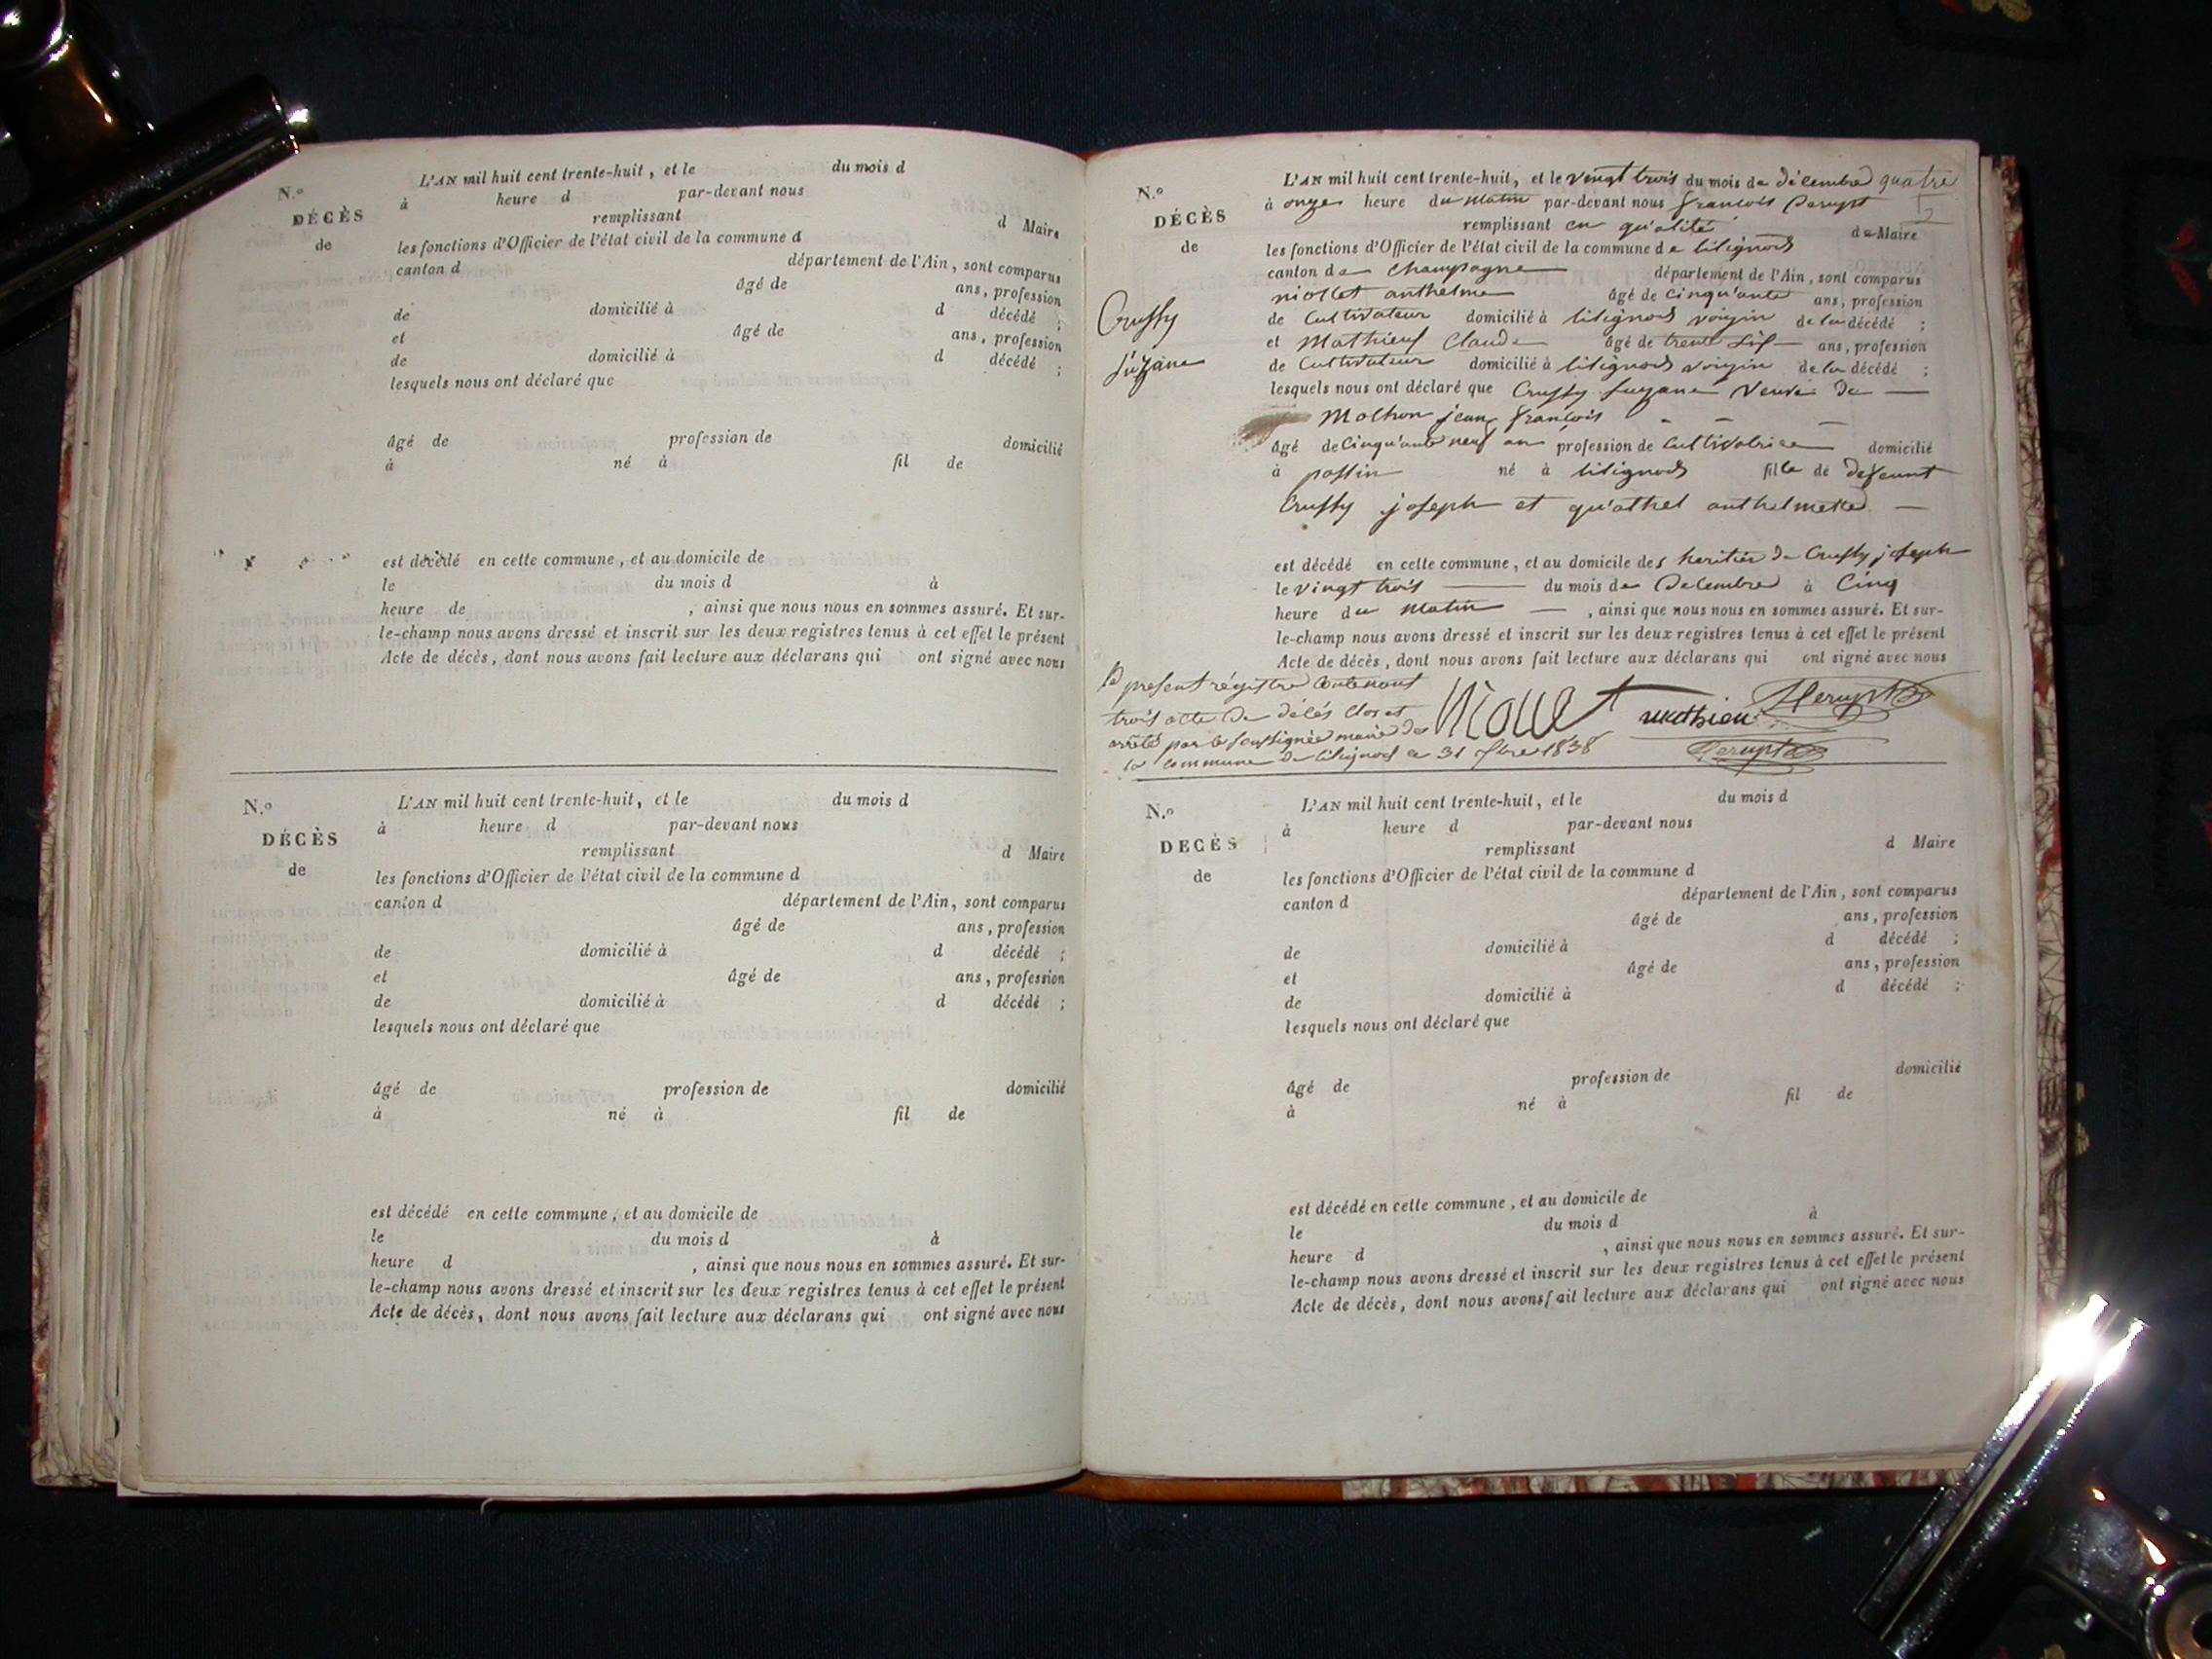 N.o
L'AN mil huit cent trente-huit, et le du mois d
à heure d par-devant nous
DÉCÈS
remplissant d Maire
de
les fonctions d'Officier de l'état civil de la commune d
canton d département de l'Ain, sont comparus
âgé de ans, profession
de domicilié à d décédé ;
et âgé de ans, profession
de domicilié à d décédé ;
lesquels nous ont déclaré que
âgé de profession de domicilié
à né à fil de
est décédé en cette commune, et au domicile de
le du mois d à
heure de , ainsi que nous nous en sommes assuré. Et sur-
le-champ nous avons dressé et inscrit sur les deux registres tenus à cet effet le présent
Acte de décès, dont nous avons fait lecture aux déclarans qui ont signé avec nous
N.o
L'AN mil huit cent trente-huit, et le du mois d
à heure d par-devant nous
DÉCÈS
remplissant d Maire
de
les fonctions d'Officier de l'état civil de la commune d
canton d département de l'Ain, sont comparus
âgé de ans, profession
de domicilié à d décédé ;
et âgé de ans, profession
de domicilié à d décédé ;
lesquels nous ont déclaré que
âgé de profession de domicilié
à né à fil de
est décédé en cette commune, et au domicile de
le du mois d à
heure d , ainsi que nous nous en sommes assuré. Et sur-
le-champ nous avons dressé et inscrit sur les deux registres tenus à cet effet le présent
Acte de décès, dont nous avons fait lecture aux déclarans qui ont signé avec nous
N.o
L'AN mil huit cent trente-huit, et le vingt trois du mois de décembre quatre
à onze heure du matin par-devant nous francois Serupt
DÉCÈS
remplissant en qu'alité de Maire
de
les fonctions d'Officier de l'état civil de la commune de lilignod
canton de Champagne département de l'Ain, sont comparus
niollet anthelme âgé de cinqu'ante ans, profession
Crussy
de Cultivateur domicilié à lilignod voizin de la décédé ;
et Mathieu Claude âgé de trente six ans, profession
Suzane
de Cultivateur domicilié à lilignod voizin de la décédé ;
lesquels nous ont déclaré que Crussy Suzane Veuve de
Molhon jean francois
âgé de cinqu'ante neuf an profession de Cultivatrice domicilié
à possin né à lilignod fille de defeunt
Crussy joseph et qu'athel anthelmette
est décédé en cette commune, et au domicile des heritier de Crussy joseph
le vingt trois du mois de Decembre à Cinq
heure du Matin , ainsi que nous nous en sommes assuré. Et sur-
le-champ nous avons dressé et inscrit sur les deux registres tenus à cet effet le présent
Acte de décès, dont nous avons fait lecture aux déclarans qui ont signé avec nous
le present régistre contenant
trois acte de décés clos et
arrêté par le soussignée maire de
la commune de lilignod ce 31 Xbre 1838
Niollet mathieu Serupt
Serupt
N.o
L'AN mil huit cent trente-huit, et le du mois d
à heure d par-devant nous
DECÈS
remplissant d Maire
de
les fonctions d'Officier de l'état civil de la commune d
canton d département de l'Ain, sont comparus
âgé de ans, profession
de domicilié à d décédé ;
et âgé de ans, profession
de domicilié à d décédé ;
lesquels nous ont déclaré que
âgé de profession de domicilié
à né à fil de
est décédé en cette commune, et au domicile de
le du mois d à
heure d , ainsi que nous nous en sommes assuré. Et sur-
le-champ nous avons dressé et inscrit sur les deux registres tenus à cet effet le présent
Acte de décès, dont nous avons fait lecture aux déclarans qui ont signé avec nous